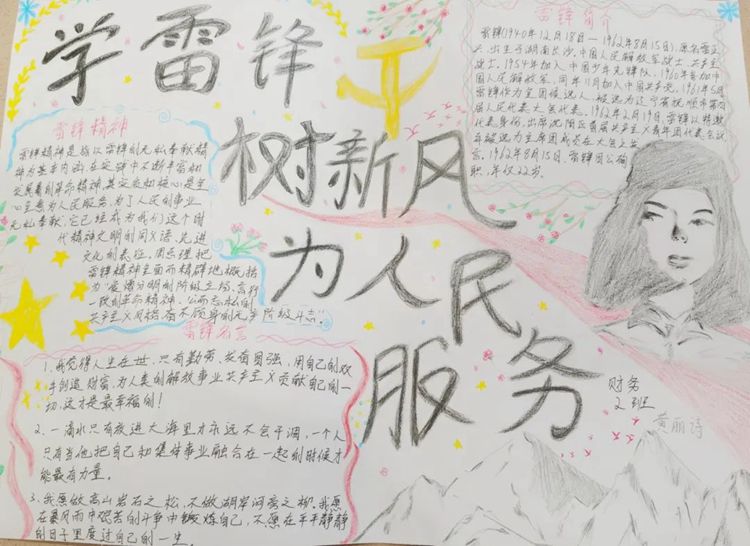 学雷锋
树新风
为人民
服务
雷锋简介
雷锋(1940年12月18日—1962年8月15日),原名雷正
兴,出生于湖南长沙,中国人民解放军战士,共产主义
战士,1954年加入中国少年先锋队,1960年参加中
国人民解放军,同年11月加入中国共产党。1961年5月
雷锋作为主团候选人,被选为辽宁省抚顺市第四
届人民代表大会代表。1962年2月19日,雷锋以特邀
代表身份,出席沈阳军区首届共产主义青年团代表会议
并被选为主席团成员在大会上发
言。1962年8月15日,雷锋因公殉
职,年仅22岁。
雷锋精神
雷锋精神是指以雷锋的无私奉献精
神为基本内涵,在实践中不断丰富和
发展着的革命精神,其实质和核心是全
心全意为人民服务,为了人民的事业
无私奉献,它已经成为我们这个时
代精神文明的同义语、先进
文化的表征。周总理把
雷锋精神全面而精辟地概括
为“爱憎分明的阶级立场、言行
一致的革命精神、公而忘私的
共产主义风格、奋不顾身的无产阶级斗志”。
雷锋名言
1、我觉得人生在世,只有勤劳,发奋图强,用自己的双
手创造财富,为人类的解放事业共产主义贡献自己的一
切,这才是最幸福的!
2、一滴水只有放进大海里才永远不会干涸,一个人
只有当他把自己和集体事业融合在一起的时候才
能最有力量。
3、我愿做高山岩石之松,不做湖岸河旁之柳。我愿
在暴风雨中艰苦的斗争中锻炼自己,不愿在平平静静
的日子里度过自己的一生。
财务
2班
黄丽诗